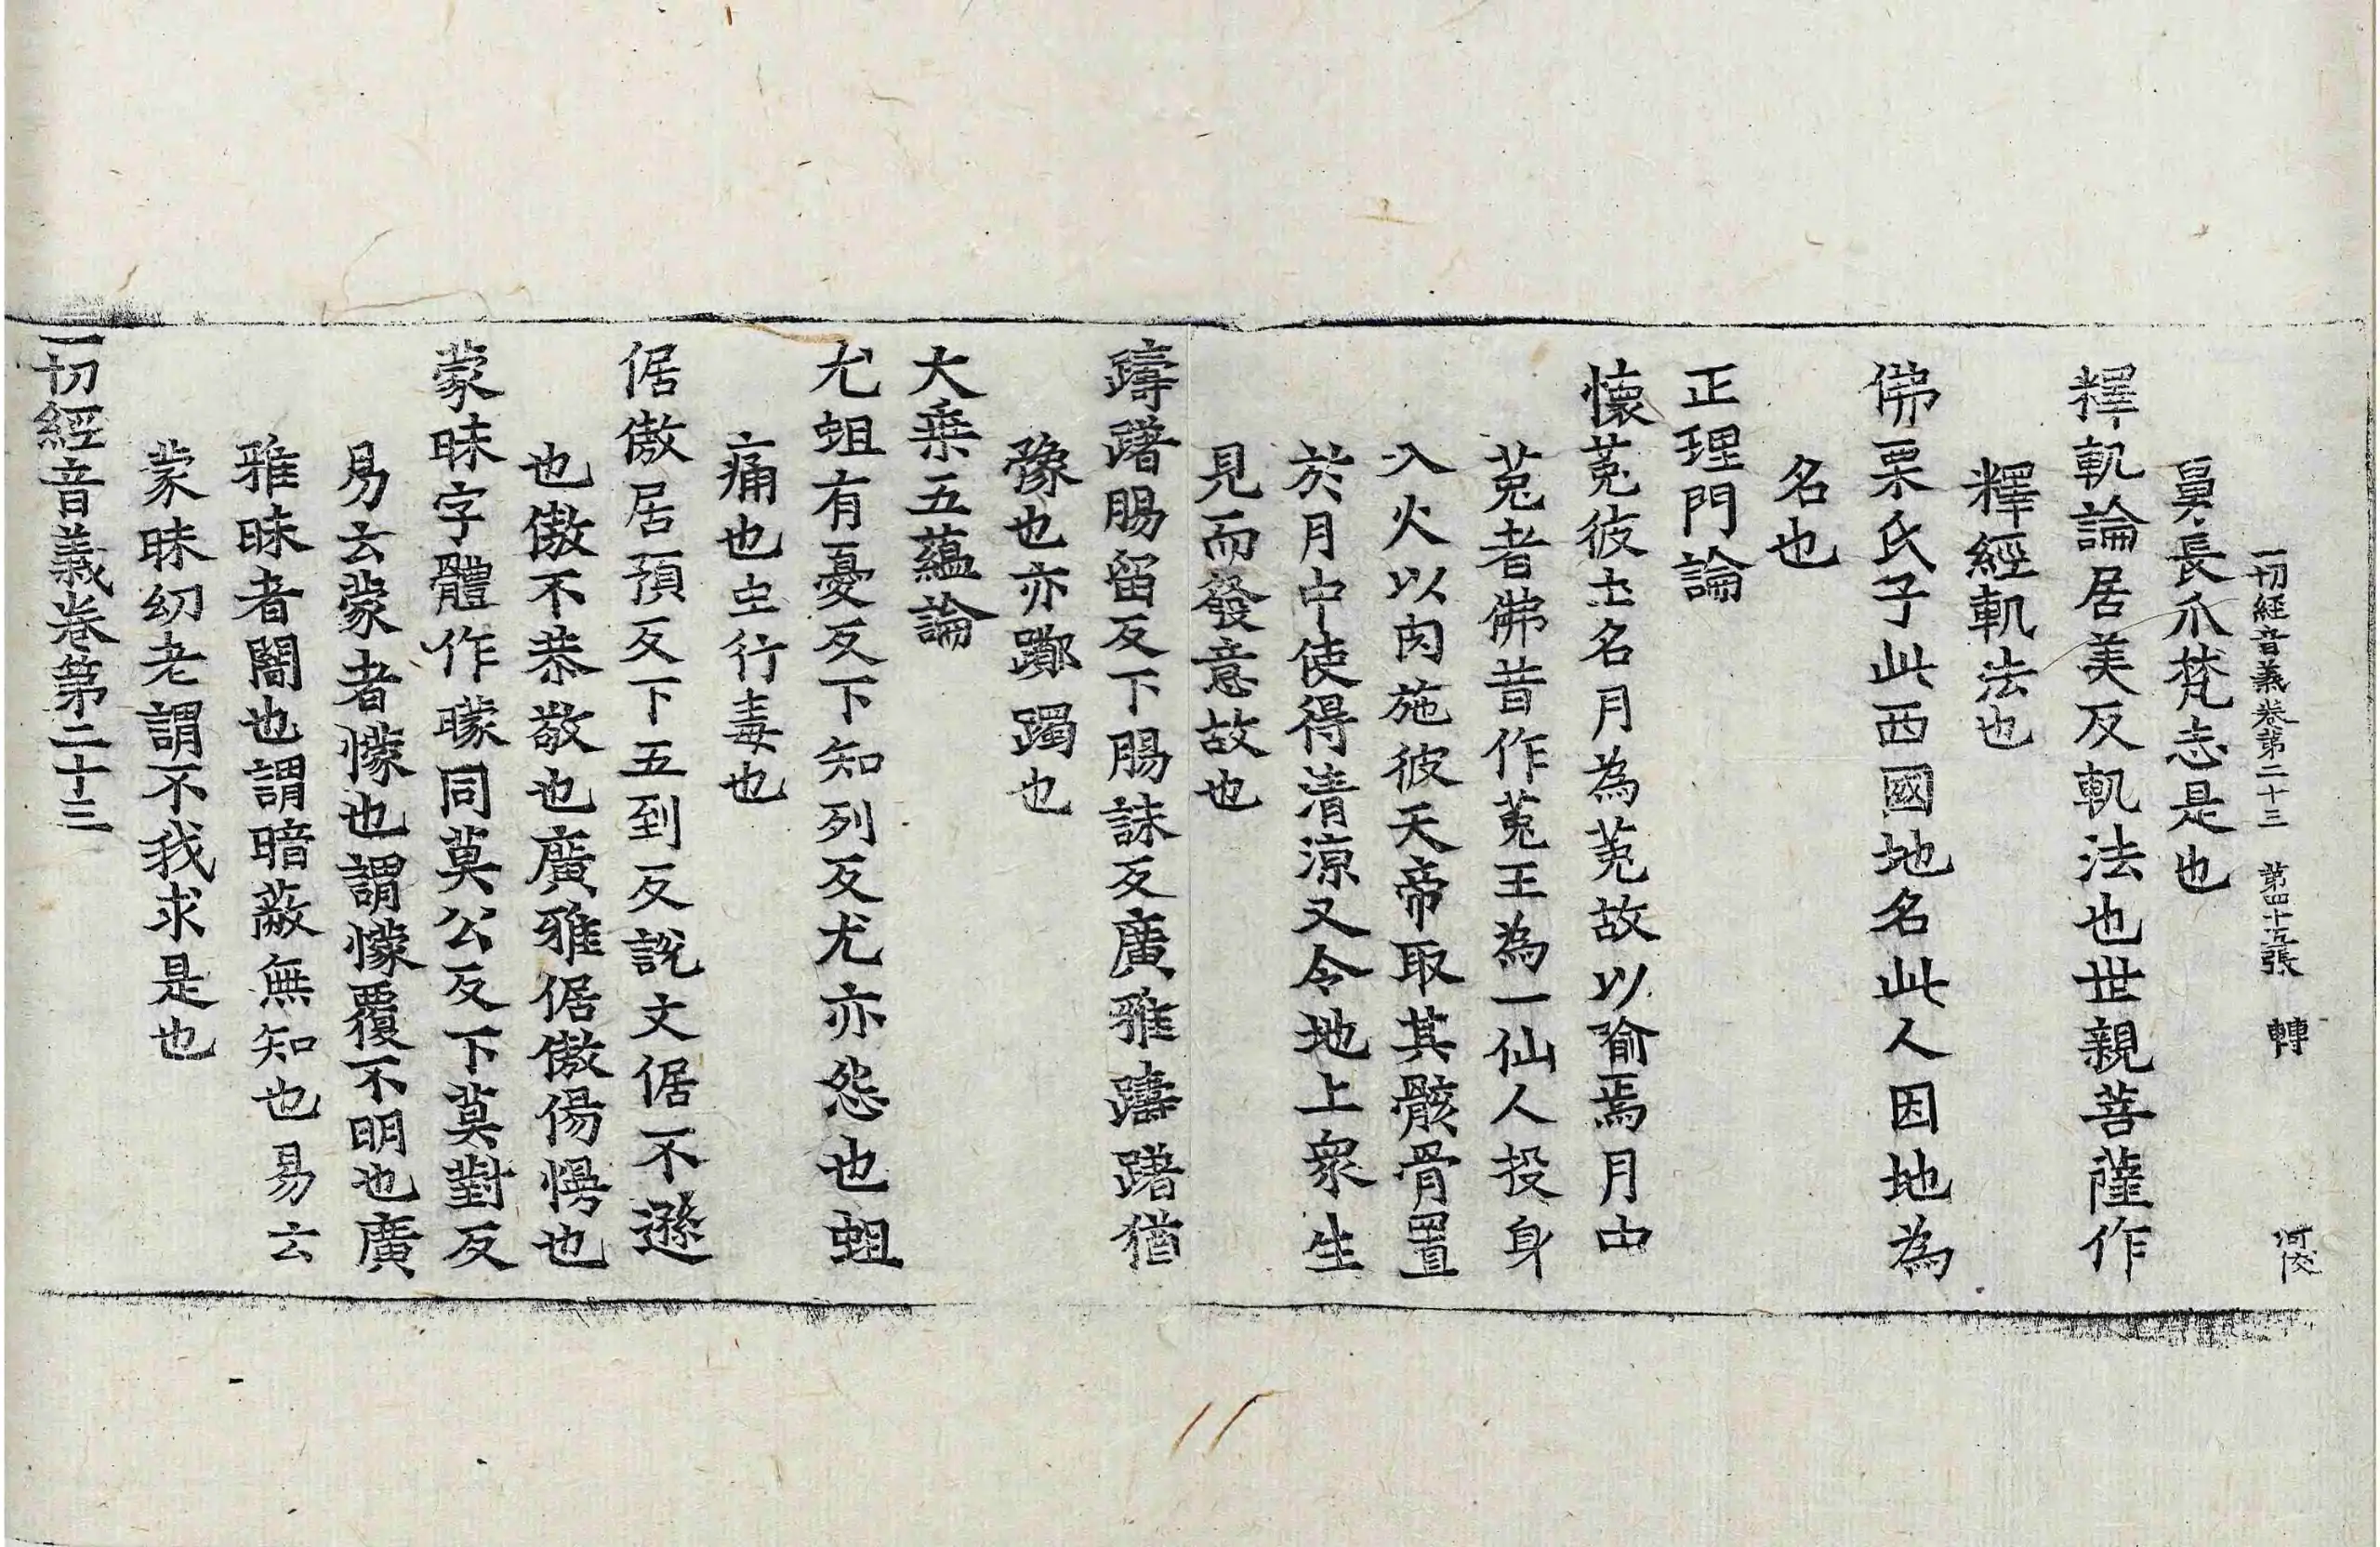 一切經音義卷第二十三　第四十五張　轉
舅長爪梵志是也
釋軌論居美反軌法也世親菩薩作
釋經軌法也
佛栗氏子此西國地名此人因地為
名也
正理門論
懷菟彼土名月為菟故以喻焉月中
菟者佛昔作菟王為一仙人投身
入火以肉施彼天帝取其骸骨置
於月中使得清涼又令地上眾生
見而發意故也
躊躇腸留反下腸誅反廣雅躊躇猶
豫也亦躑躅也
大乘五蘊論
尤蛆有憂反下知列反尤亦怨也蛆
痛也虫行毒也
倨傲居預反下五到反說文倨不遜
也傲不恭敬也廣雅倨傲傷慢也
蒙昧字體作矇同莫公反下莫對反
易云蒙者懞也謂懞覆不明也廣
雅昧者闇也謂暗蔽無知也易云
蒙昧幼老謂不我求是也
一切經音義卷第二十三